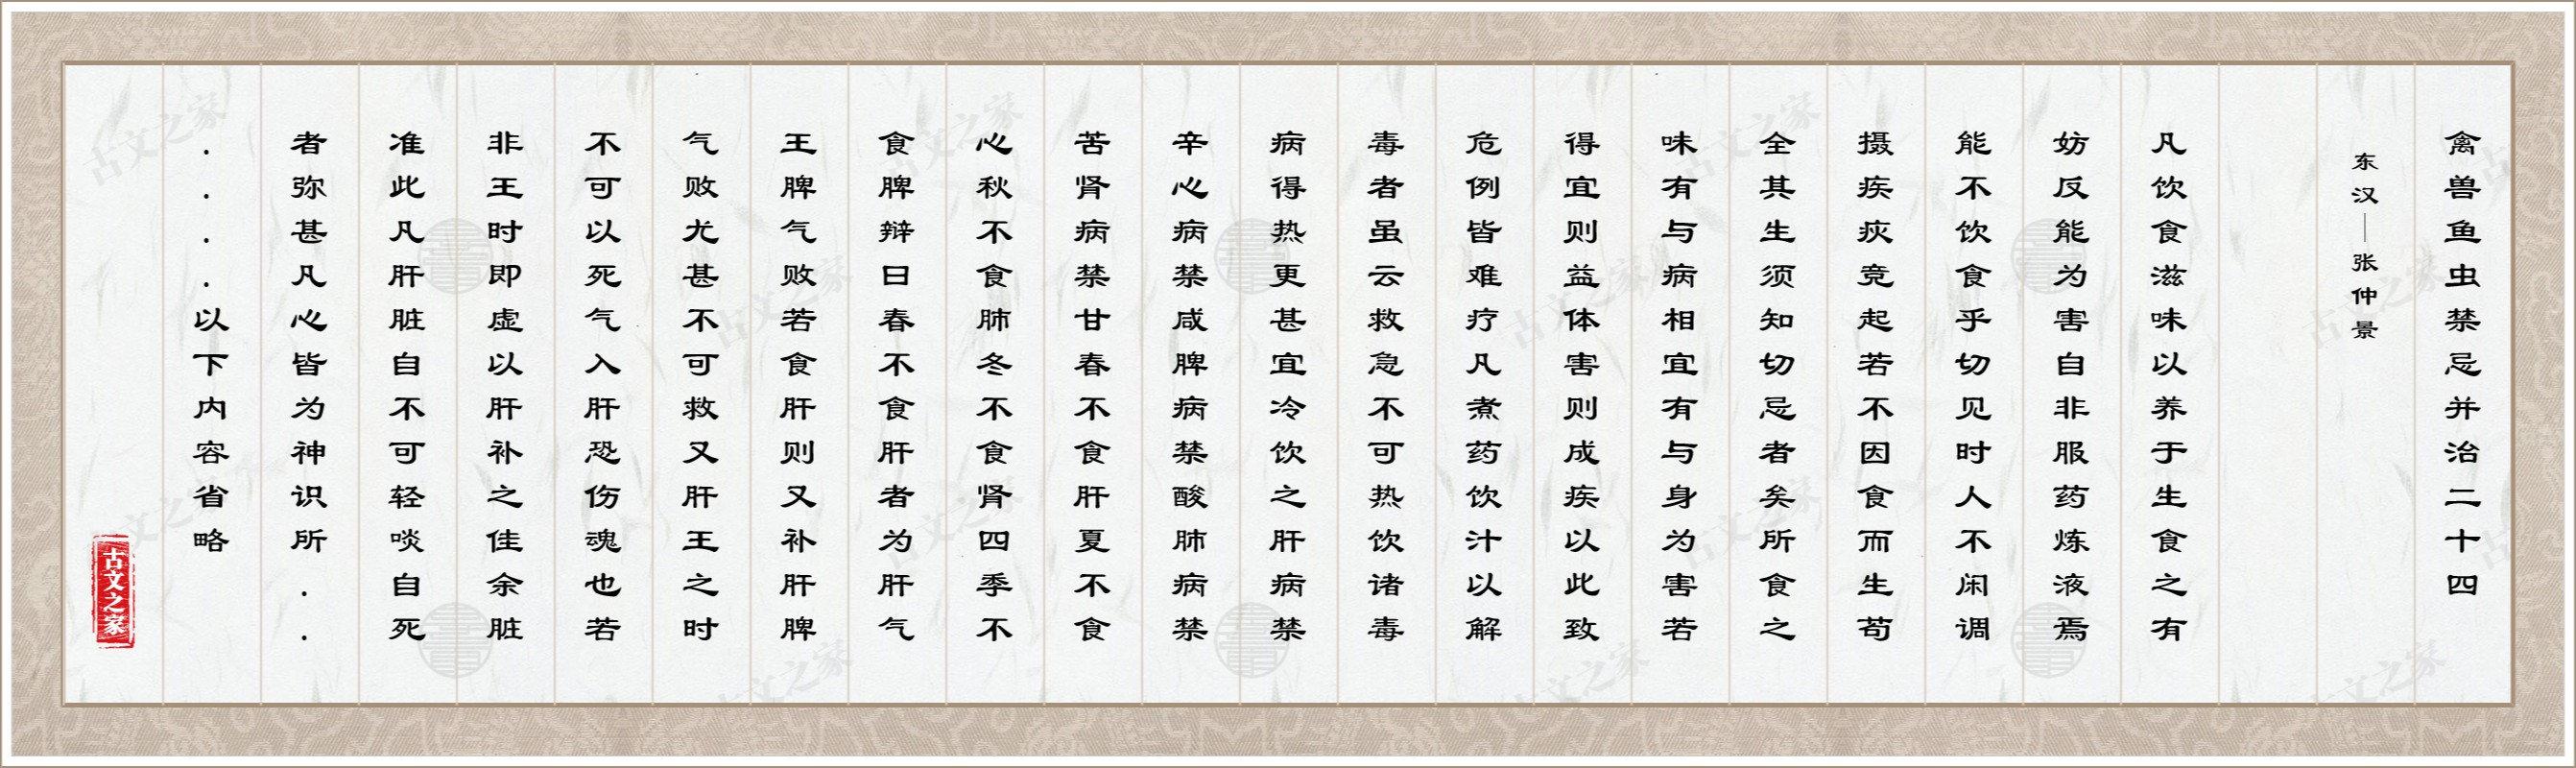 禽兽鱼虫禁忌并治二十四
东汉｜张仲景
凡饮食滋味以养于生食之有
妨反能为害自非服药炼液焉
能不饮食乎切见时人不闲调
摄疾疢竞起若不因食而生苟
全其生须知切忌者矣所食之
味有与病相宜有与身为害若
得宜则益体害则成疾以此致
危例皆难疗凡煮药饮汁以解
毒者虽云救急不可热饮诸毒
病得热更甚宜冷饮之肝病禁
辛心病禁咸脾病禁酸肺病禁
苦肾病禁甘春不食肝夏不食
心秋不食肺冬不食肾四季不
食脾辩曰春不食肝者为肝气
王脾气败若食肝则又补肝脾
气败尤甚不可救又肝王之时
不可以死气入肝恐伤魂也若
非王时即虚以肝补之佳余脏
准此凡肝脏自不可轻啖自死
者弥甚凡心皆为神识所..
....以下内容省略
古文之家